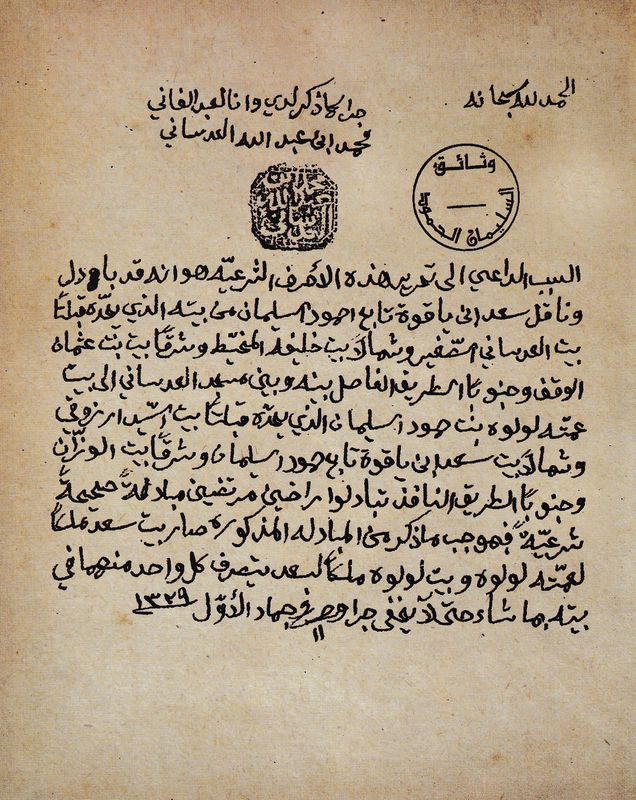 الحمد لله سبحانه
جرا ما ذكر لدي وانا العبد الفاني
محمد ابن عبد الله العدساني
وثائق
السليمان الحمود
السبب الداعي الى تحرير هذه الأحرف الشرعيّه هو انه قد بادل
وناقل سعد ابن ياقوة تابع احمود السليمان من بيته الذي يحدّه قبلتاً
بيت العدساني الصّغير وشمالاً بيت خليفه المخيّط وشرقاً بيت بنت عثمان
الوقف وجنوباً الطريق الفاصل بينه وبين مسجد العدساني الى بيت
عمته لولوه بنت حمود السليمان الذي يحدّه قبلتاً بيت السّيد ارزوقي
وشمالاً بيت سعد ابن ياقوة تابع حمود السليمان وشرقاً بيت الوزّان
وجنوباً الطريق النافذ تبادلوا راضين مرتضين مبادلةً صحيحةً
شرعيّةً فبموجب ما ذكر من المبادله المذكوره صار بيت سعد ملكاً
لعمّته لولوه وبيت لولوه ملكاً لسعد يتصرف كل واحد منهما في
بيته بما شاء حتى لا يخفى جرا وحرر في جماد الأوّل ١٣٢٩
١١